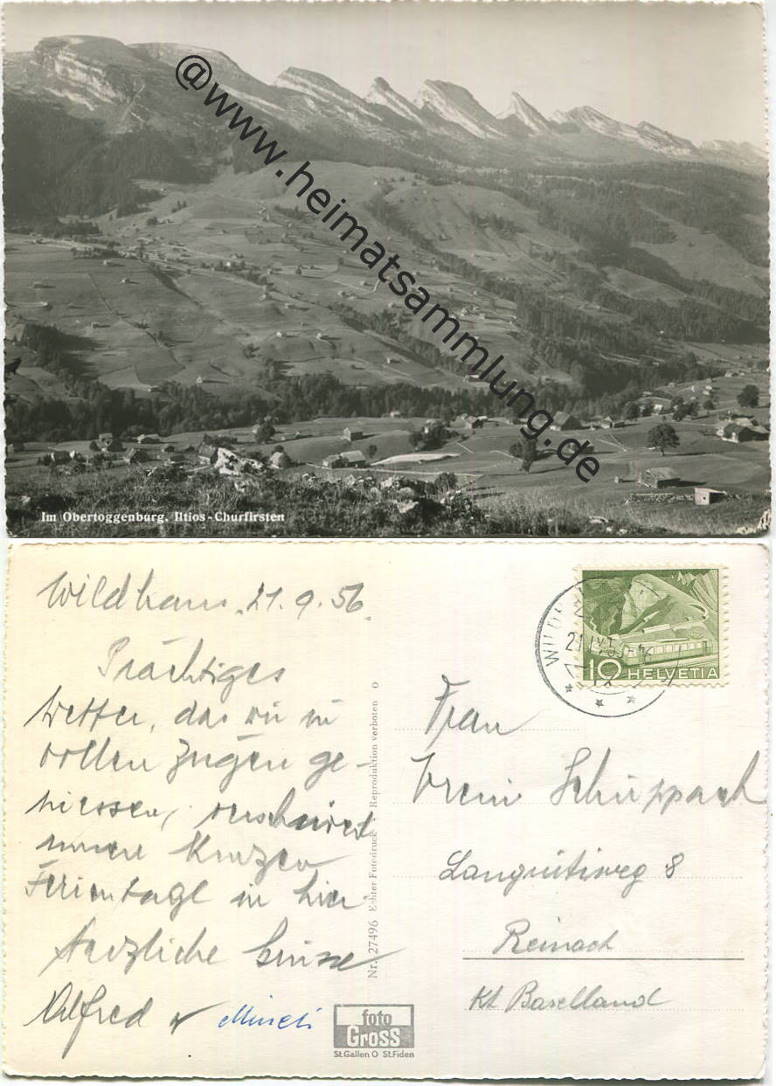 @www.heimatsammlung.de
Im Obertoggenburg. Iltios-Churfirsten
Wildhaus, 21.9.56
Prächtiges
Wetter, das wir in
vollen Zügen ge-
niessen, verschönert
unsere kurzen
Ferientage in hier.
Herzliche Grüsse
Alfred
Nr. 27496 Echter Fotodruck Reproduktion verboten O
foto
Gross
St.Gallen O St.Fiden
10 HELVETIA
Frau
Schüppach
Langrütiweg 8
Reinach
Kt Baselland